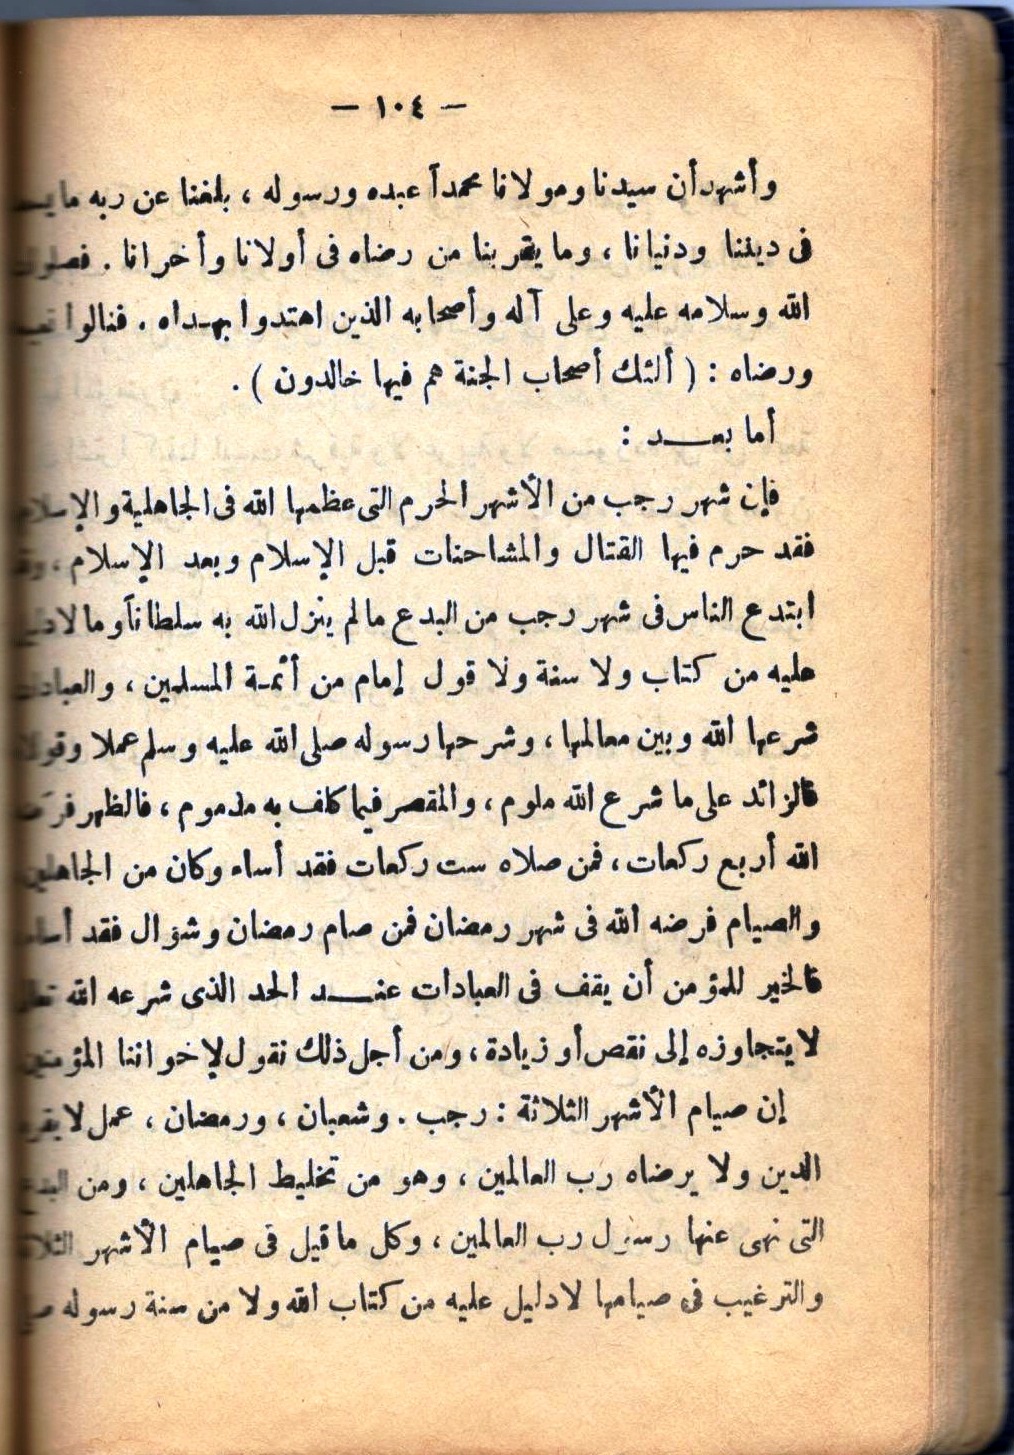 — ١٠٤ —
وأشهد أن سيدنا ومولانا محمدآ عبده ورسوله ، بلغنا عن ربه
فى ديننا ودنيانا ، وما يقربنا من رضاه فى أولانا وأخرانا .
الله وسلامه عليه وعلى آله وأصحابه الذين اهتدوا بهداه . فنالوا
ورضاه : ( ألئك أصحاب الجنة هم فيها خالدون ) .
أما بعد :
فإن شهر رجب من الأشهر الحرم التى عظمها الله فى الجاهلية والإسلام
فقد حرم فيها القتال والمشاحنات قبل الإسلام وبعد الإسلام ،
ابتدع الناس فى شهر رجب من البدع مالم ينزل الله به سلطانآ وما
عليه من كتاب ولا سنة ولا قول إمام من أئمة المسلمين ،
شرعها الله وبين معالمها ، وشرحها رسوله صلى الله عليه وسلم عملا
فالزائد على ما شرع الله ملوم ، والمقصر فيما كلف به مذموم ، فالظهر
الله أربع ركعات ، فمن صلاه ست ركعات فقد أساء وكان من
والصيام فرضه الله فى شهر رمضان فمن صام رمضان وشوال فقد
فالخير للمؤمن أن يقف فى العبادات عند الحد الذى شرعه الله
لا يتجاوزه إلى نقص أو زيادة ، ومن أجل ذلك نقول لإخواننا
إن صيام الأشهر الثلاثة : رجب . وشعبان ، ورمضان ، عمل
الدين ولا يرضاه رب العالمين ، وهو من تخليط الجاهلين ، ومن
التى نهى عنها رسول رب العالمين ، وكل ما قيل فى صيام الأشهر
والترغيب فى صيامها لا دليل عليه من كتاب الله ولا من سنة رسوله